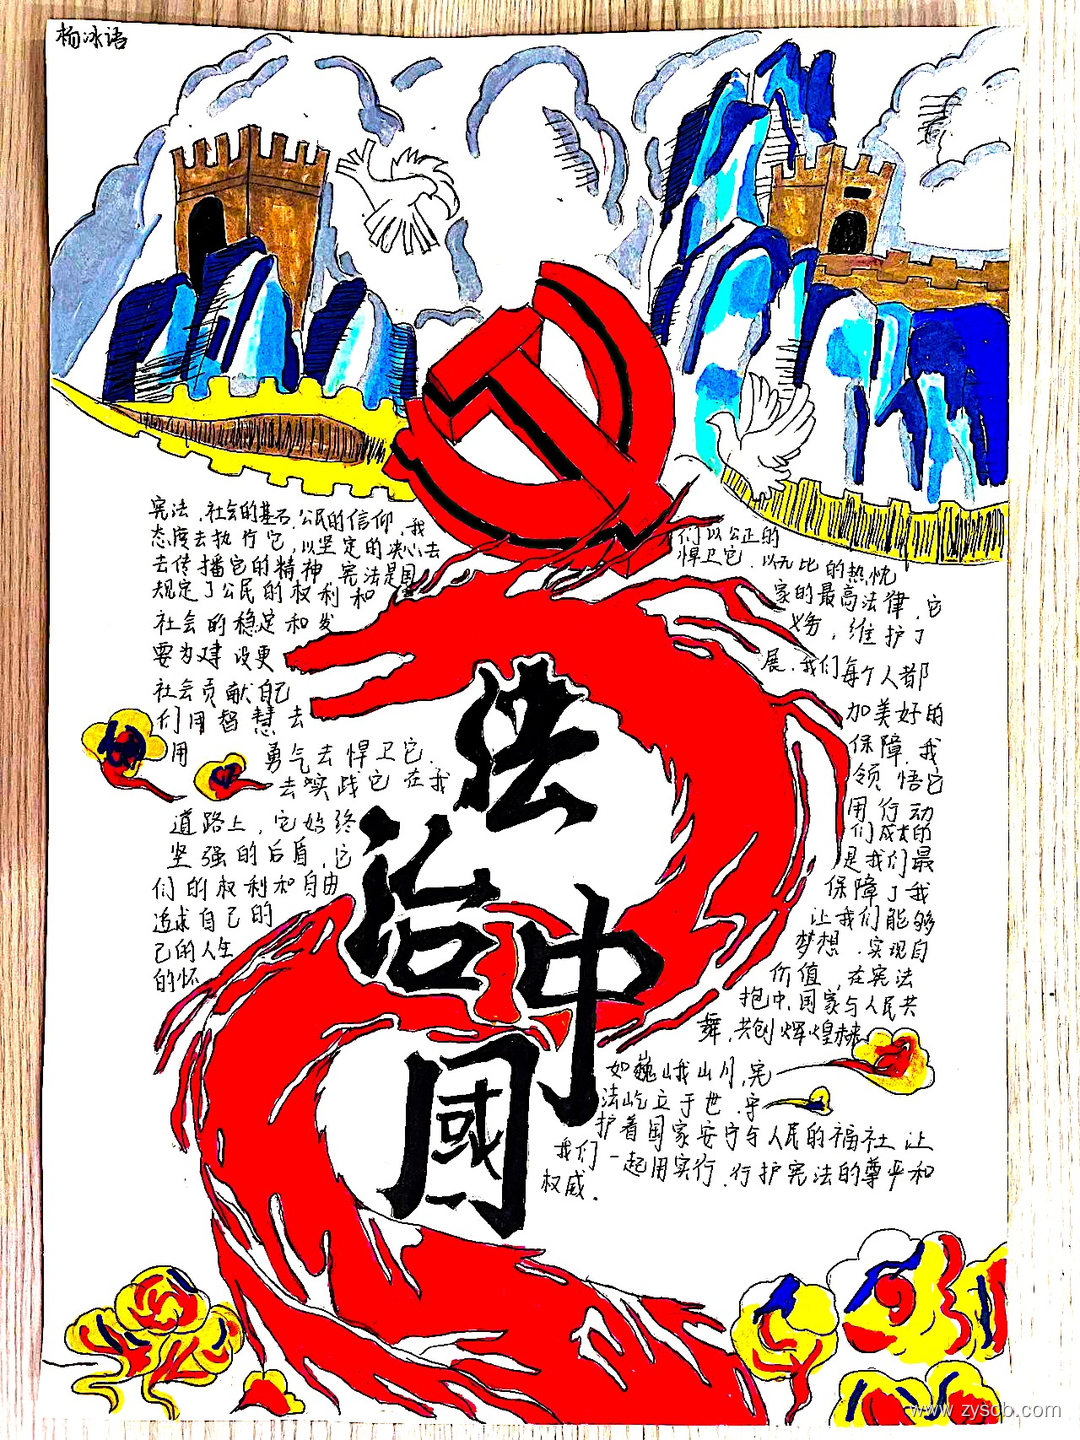 杨冰语
宪法,社会的基石,公民的信仰,我们以公正的
态度去执行它,以坚定的决心去悍卫它.以无比的热忱
去传播它的精神 宪法是国家的最高法律,它
规定了公民的权利和义务,维护了
社会的稳定和发展.我们每个人都
要为建设更加美好的
社会贡献自己保障,我
们用智慧去领悟它
用勇气去悍卫它.用行动
去实战它 在我们成长的
道路上,它始终是我们最
坚强的后盾,它保障了我
们的权利和自由让我们能够
追求自己的梦想.实现自
己的人生价值,在宪法
的怀抱中,国家与人民共
舞,共创辉煌赫
如巍峨山川,宪
法屹立于世.守
护着国家安宁与人民的福社 让
我们一起用实行.行护宪法的尊严和
权威.
法治中國
www.zyscb.com